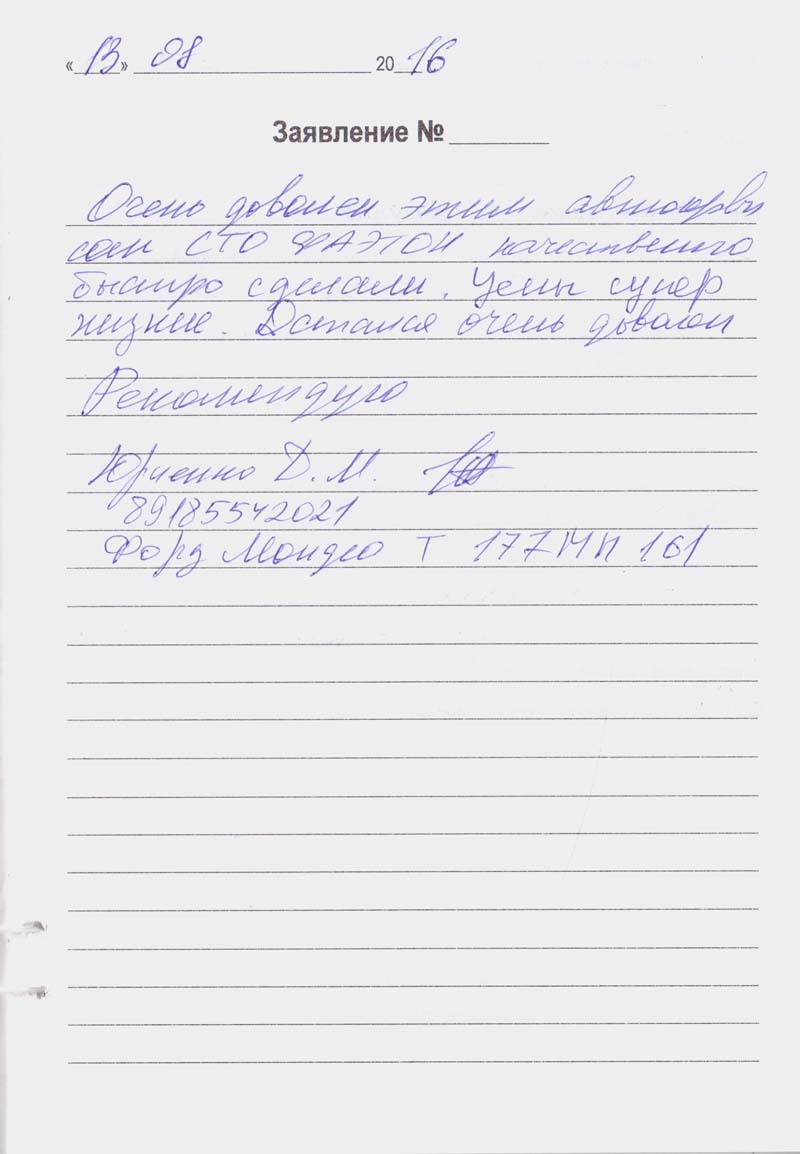 «13» 08 2016
Заявление №
Очень доволен этим автосерви
сом СТО ФАЭТОН качественно
быстро сделали. Цены супер
низкие. Остался очень доволен
Рекомендую
Юриенко Д.М.
89185542021
Форд Мондео Т 177 МП 161